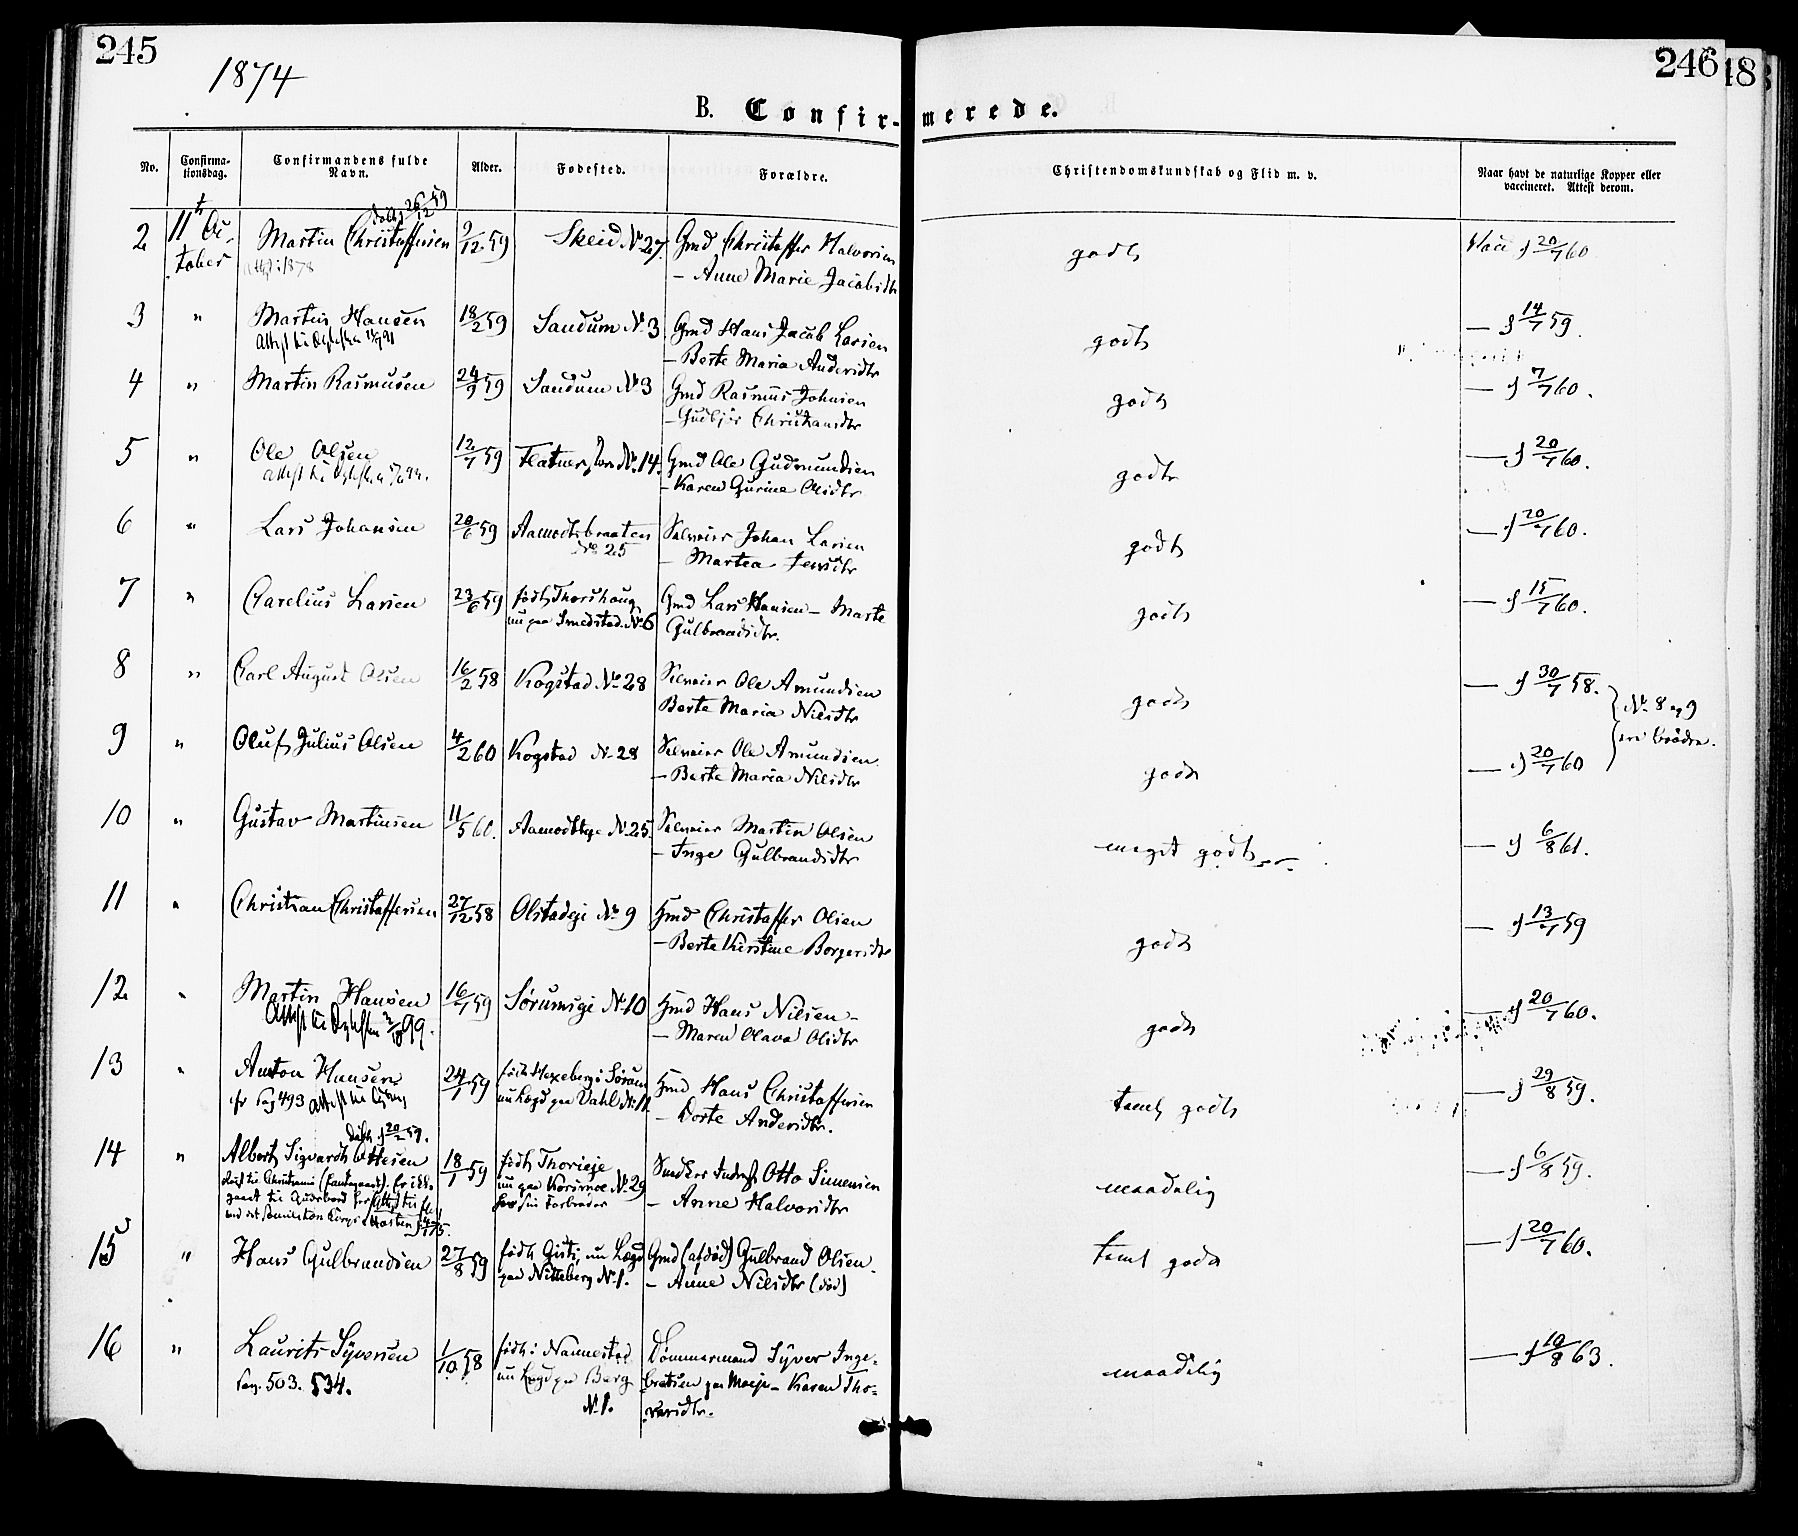 245
246
1874
B. Confir-merede.
No. Confirma-tionsdag. Confirmandens fulde Navn. Alder. Fødested. Forældre. Christendomskundskab og Flid m. v. Naar havt de naturlige Kopper eller vaccineret. Attest derom.
døbt 26/12 59
2 11te Oc- Martin Christoffersen 9/12 59 Skeid No 27 Gmd Christoffer Halvorsen godt Vacc 20/7 60
tober Attest 1878 — Anne Marie Jacobsdtr
3 " Martin Hansen 18/2 59 Sandum No 3 Gmd Hans Jacob Larsen godt — 14/7 59.
— Berte Maria Andersdtr
4 " Martin Rasmusen 24/9 59 Sandum No 3 Gmd Rasmus Johnsen godt — 7/7 60.
— Gudbjør Christiansdtr
5 " Ole Olsen 12/7 59 No 14. Gmd Ole Gudmundsen godt — 20/7 60.
— Karen Gurine Olsdtr
6 " Lars Johansen 20/6 59 Aamodtsbraaten Selveier Johan Larsen godt — 20/7 60.
No 25 — Martea Jensdtr
7 " Carelius Larsen 23/6 59 født Thorshaug Gmd Lars Hansen — Marte godt — 15/7 60.
nu paa Smedstad No 6 Gulbrandsdtr.
8 " Carl August Olsen 16/2 58 Kogstad No 28 Selveier Ole Amundsen godt — 30/7 58.
Berte Maria Nilsdtr No 8 og 9
9 " Oluf Julius Olsen 4/2 60 Kogstad No 28 Selveier Ole Amundsen godt — 20/7 60 ere Brødre.
— Berte Maria Nilsdtr
10 " Gustav Martinsen 11/5 60. No 25. Selveier Martin Olsen meget godt — 6/8 61.
— Inge Gulbrandsdtr
11 " Christian Christoffersen 27/12 58 Olstadeje No 9 Hmd Christoffer Olsen godt — 13/7 59
— Berte Kirstine Borgersdtr
12 " Martin Hansen 16/7 59 Sørumseje No 10 Hmd Hans Nilsen — godt — 20/7 60.
99. — Maren Olava Olsdtr
13 " Anton Hansen 24/1 59 født Hexeberg i Sørum Hmd Hans Christoffersen temt godt — 29/8 59.
cfr Pag 493 nu Lægd paa Dahl No 11 — Dorte Andersdtr.
Døbt 20/2 59.
14 " Albert Sigvardt Ottesen 18/1 59 født Thorseje Otto Simensen maadelig — 6/8 59.
nu paa Korsmoe No 29 — Anne Halvorsdtr
hos sin Farbroder
15 " Hans Gulbrandsen 27/8 59 født nu Lægd Gmd (afdød) Gulbrand Olsen temt godt — 20/7 60.
paa Nitteberg No 1. — Anne Nilsdtr (død)
16 " Laurits Syversen 1/10 58 født i Nannestad Tømmermand Syver Inge- maadelig — 19/8 63.
Pag. 503. 534. nu Lægd paa Berg bretsen paa Moeje — Karen Tho-
No 1. varsdtr.